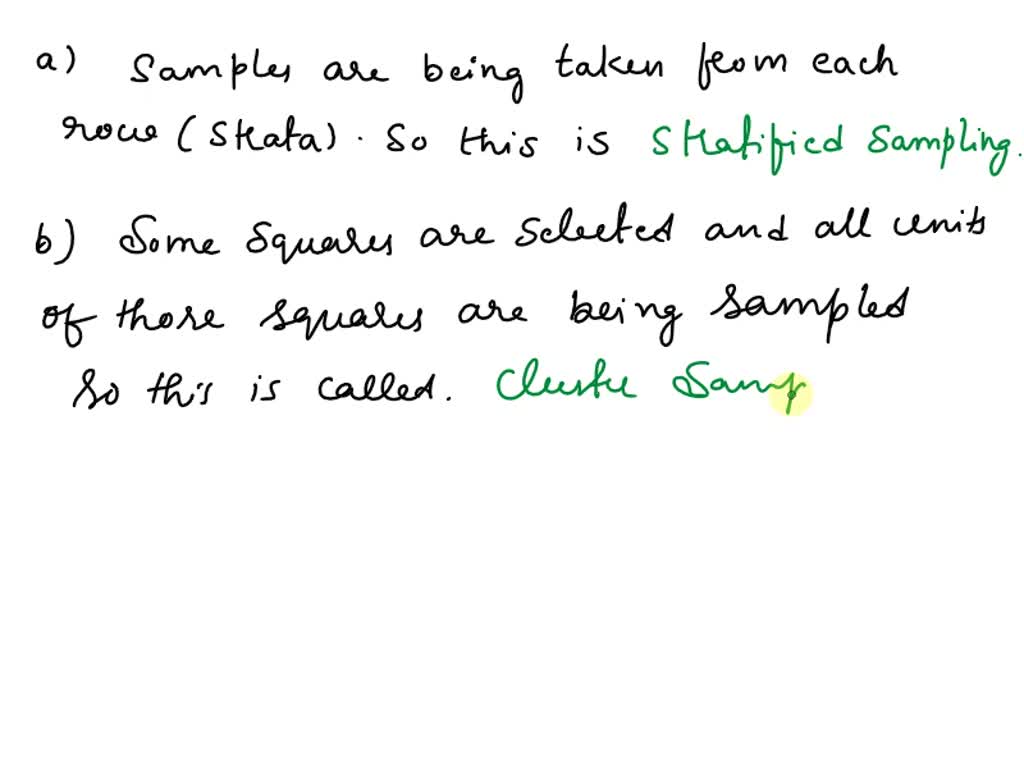 a) Samples are being taken from each
row (Strata). So this is Stratified Sampling.
b) Some Squares are selected and all units
of those squares are being sampled
So this is called. Cluster Samp